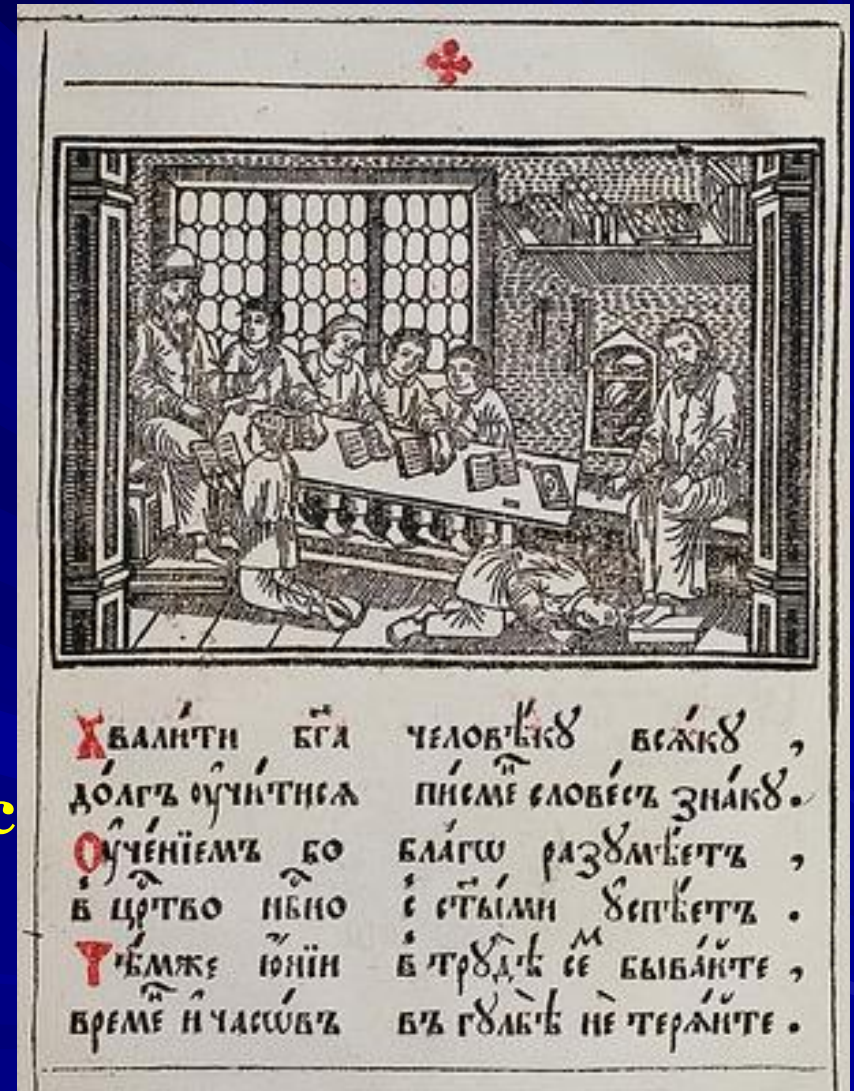 Хвали́ти бг҃а человѣ́кꙋ всѧ́кꙋ ,
до́лгъ оу҆чи́тисѧ пи́смеⷩ слове́съ зна́кꙋ .
с
Оу҆че́нїемъ бо бла́гѡ разꙋмѣ́етъ ,
в̾ црⷭ҇тво нбⷭ҇но с̾ ст҃ы́ми ꙋспѣ́етъ .
Тѣ́мже ю҆́нїи в̾ трꙋдѣ̀ сеⷨ быва́йте ,
времеⷩ и҆ часѡ́въ въ гꙋлбѣ̀ нѐ терѧ́йте .